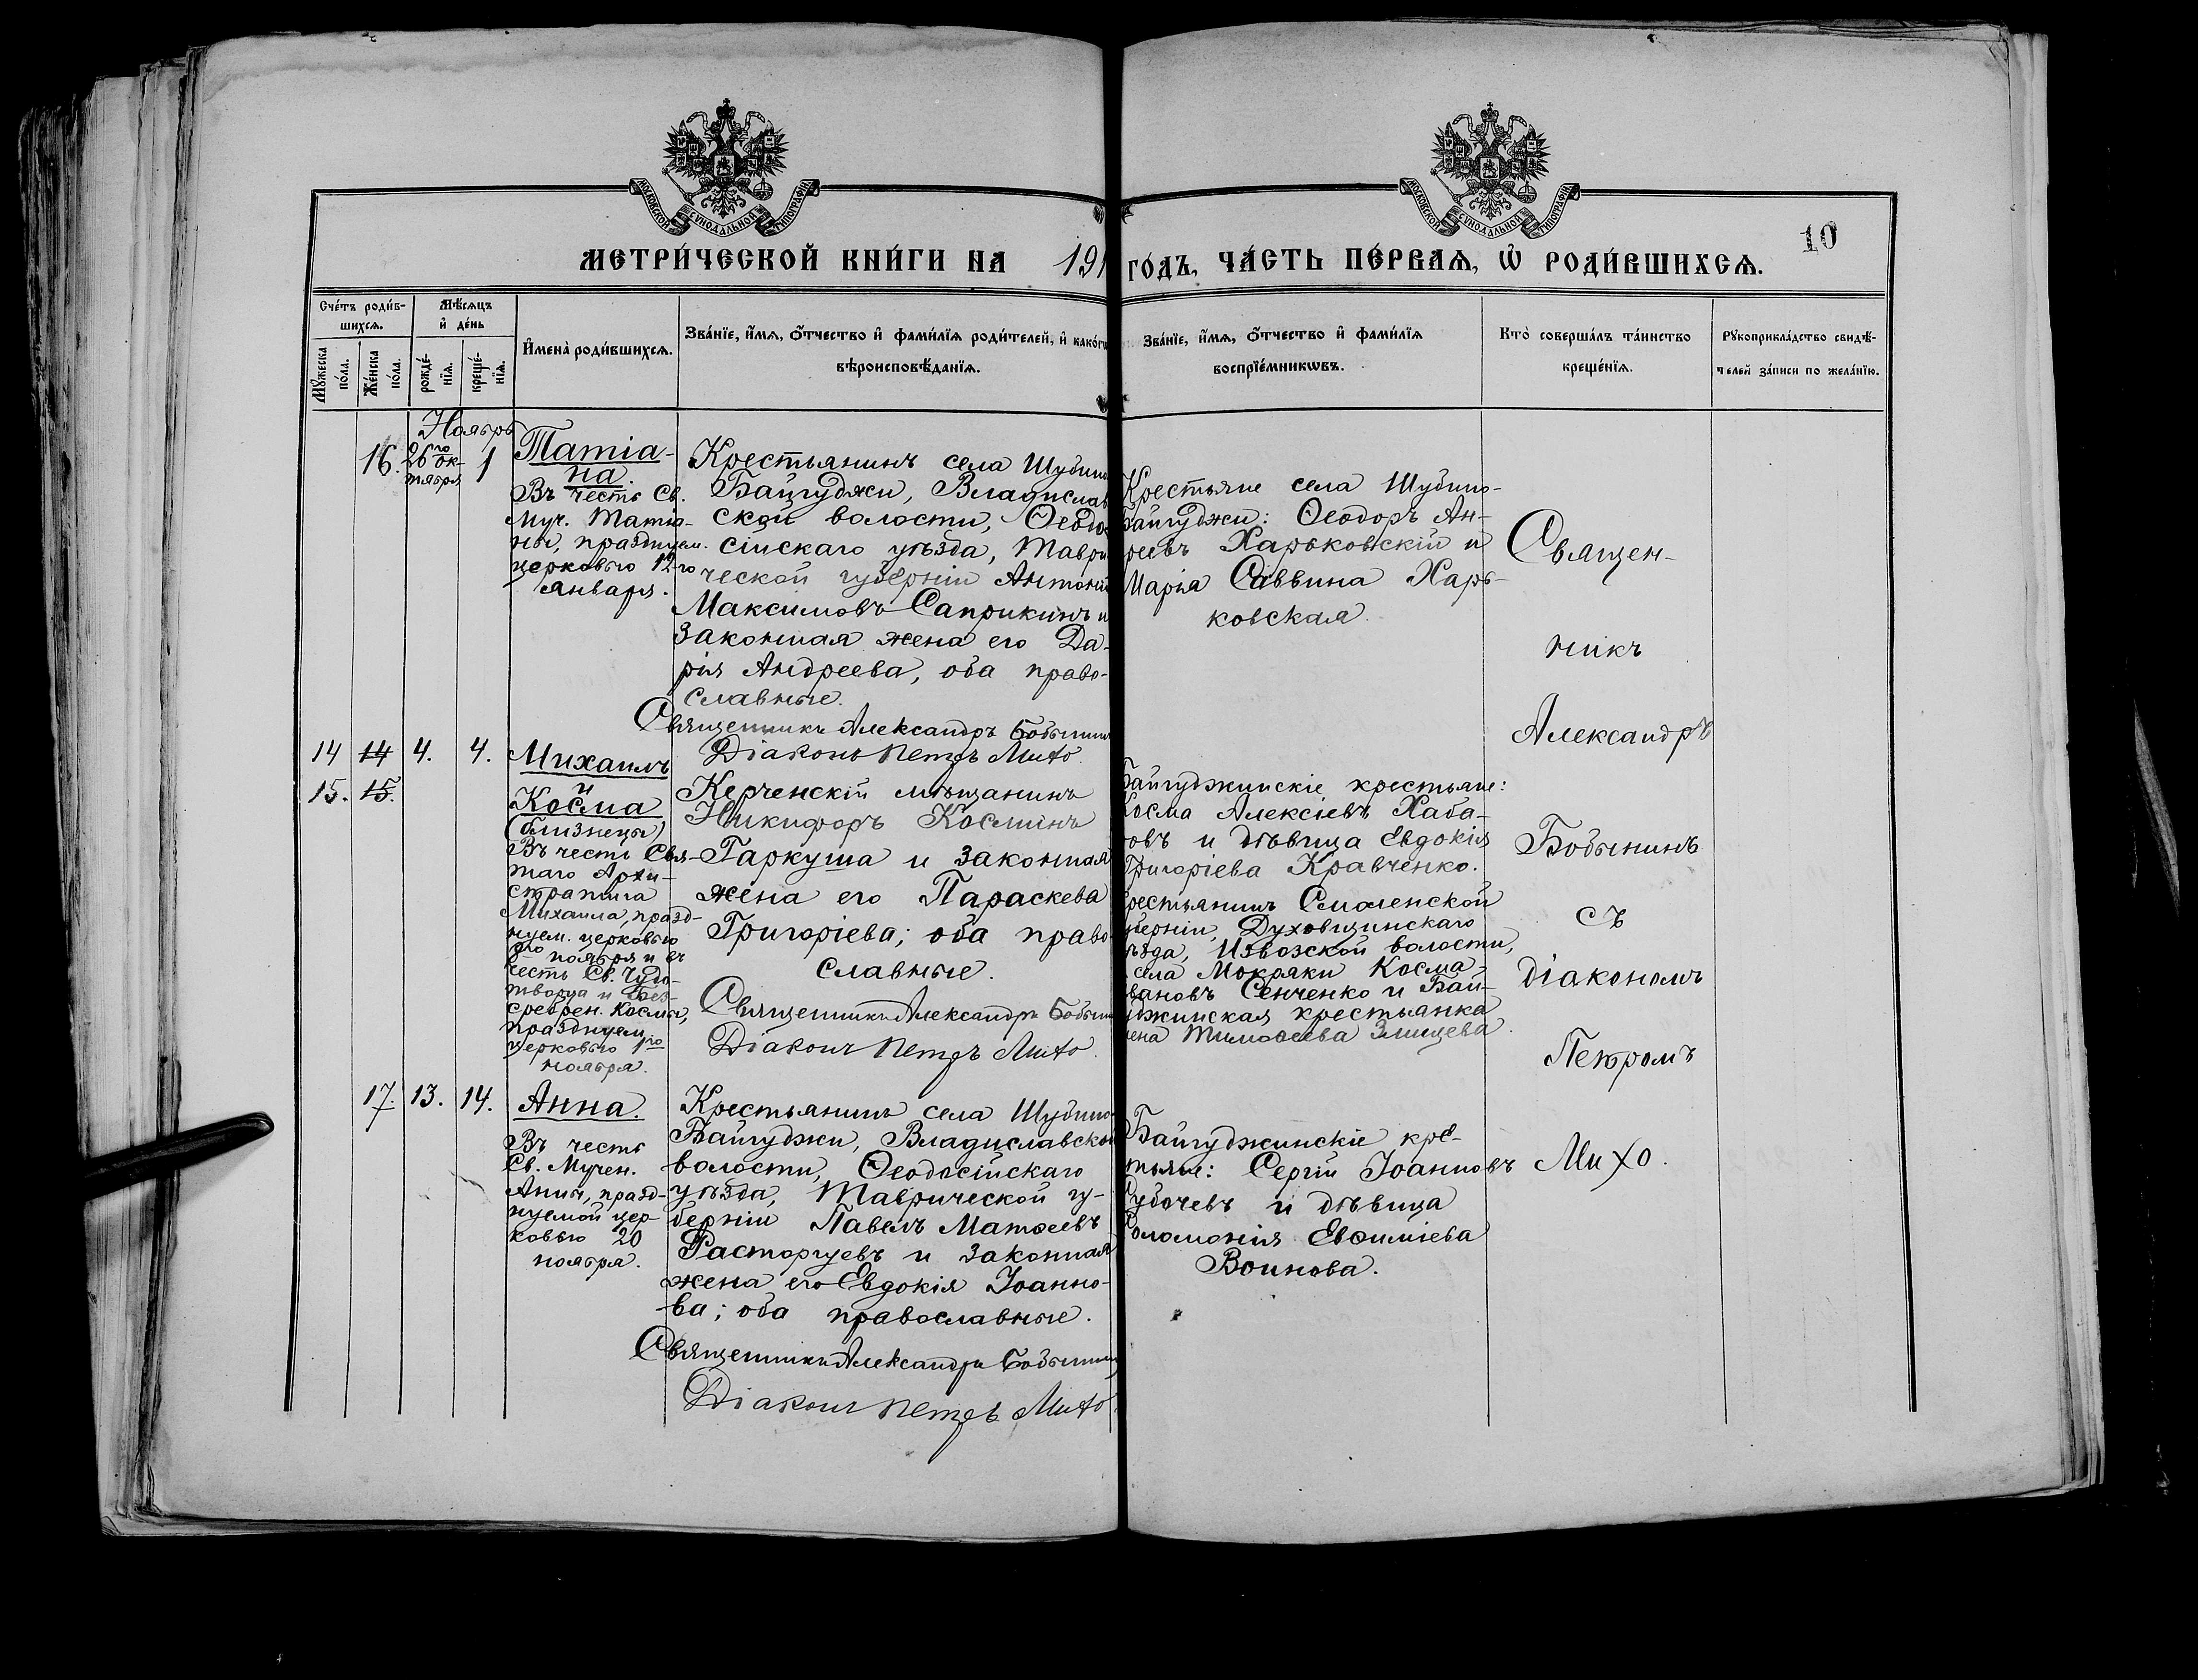 МОСКОВСКОЙ СѴНОДАЛЬНОЙ ТИПОГРАФІИ
МОСКОВСКОЙ СѴНОДАЛЬНОЙ ТИПОГРАФІИ
10
МЕТРИ́ЧЕСКОЙ КНИ́ГИ НА 191
ГО́ДЪ, ЧА́СТЬ ПЕ́РВАѦ, Ѡ҆ РОДИ́ВШИХСѦ.
Сче́тъ роди́в-
шихсѧ.
Мꙋ́жеска
по́ла.
Же́нска
по́ла.
Мѣ́сѧцъ
и҆ де́нь
рожде́-
нїѧ.
креще́-
нїѧ.
И҆мена̀ роди́вшихсѧ.
Зва́нїе, и҆́мѧ, ѻ҆́тчество и҆ фами́лїѧ роди́телей, и҆ како́гѡ
вѣроисповѣ́данїѧ.
Зва́нїе, и҆́мѧ, ѻ҆́тчество и҆ фами́лїѧ
воспрїе́мникѡвъ.
Кто̀ соверша́лъ та́инство
креще́нїѧ.
Рꙋкоприкла́дство свидѣ́-
телей за́писи по жела́нїю.
Ноябрь
16. 26го ок-
тября 1
Татіа-
на.
Въ честь Св.
Муч. Татіа-
ны, празднуем.
церковью 12го
января.
Крестьянинъ села Шубино
Байгуджи, Владислав
ской волости, Ѳеодо
сійскаго уѣзда, Таври
ческой губерніи Антоній
Максимовъ Саприкинъ и
законная жена его Да-
рія Андреева, оба право-
славные.
Священникъ Александръ Бобынинъ
Діаконъ Петръ Михо.
Крестьяне села Шубино-
Байгуджи: Ѳеодоръ Ан-
реевъ Харьковскій и
Марія Саввина Харь-
ковская.
14 14 4. 4.
15. 15.
Михаилъ
и
Косма
(близнецы)
Въ честь Свя-
таго Архи-
стратига
Михаила, празд-
нуем. церковью
8го ноября и въ
честь Св. Чудо-
творца и Без-
сребрен. Космы,
празднуем.
церковью 1го
ноября.
Керченскій мѣщанинъ
Никифоръ Косминъ
Гаркуша и законная
жена его Параскева
Григоріева; оба право-
славные.
Священникъ Александръ Бобынин
Діаконъ Петръ Михо.
Байгуджинскіе крестьяне:
Косма Алексіевъ Хаба-
овъ и дѣвица Евдокія
Григоріева Кравченко.
рестьянинъ Смоленской
уберніи, Духовщинскаго
ѣзда, Извозской волости,
села Мокряки Косма
вановъ Сенченко и Бай-
джинская крестьянка
лена Тимоѳеева
17. 13. 14.
Анна.
Въ честь
Св. Мучен.
Анны, празд-
нуемой цер-
ковью 20
ноября.
Крестьянинъ села Шубино-
Байгуджи, Владиславской
волости, Ѳеодосійскаго
уѣзда, Таврической гу-
берніи Павелъ Матѳеевъ
Расторгуевъ и законная
жена его Евдокія Іоанно-
ва; оба православные.
Священникъ Александръ Бобынин
Діаконъ Петръ Михо.
Байгуджинскіе кре-
тьяне: Сергій Іоанновъ
убочевъ и дѣвица
Соломонія Евѳиміева
Воинова.
Священ-
никъ
Александръ
Бобынинъ
съ
діакономъ
Петромъ
Михо.